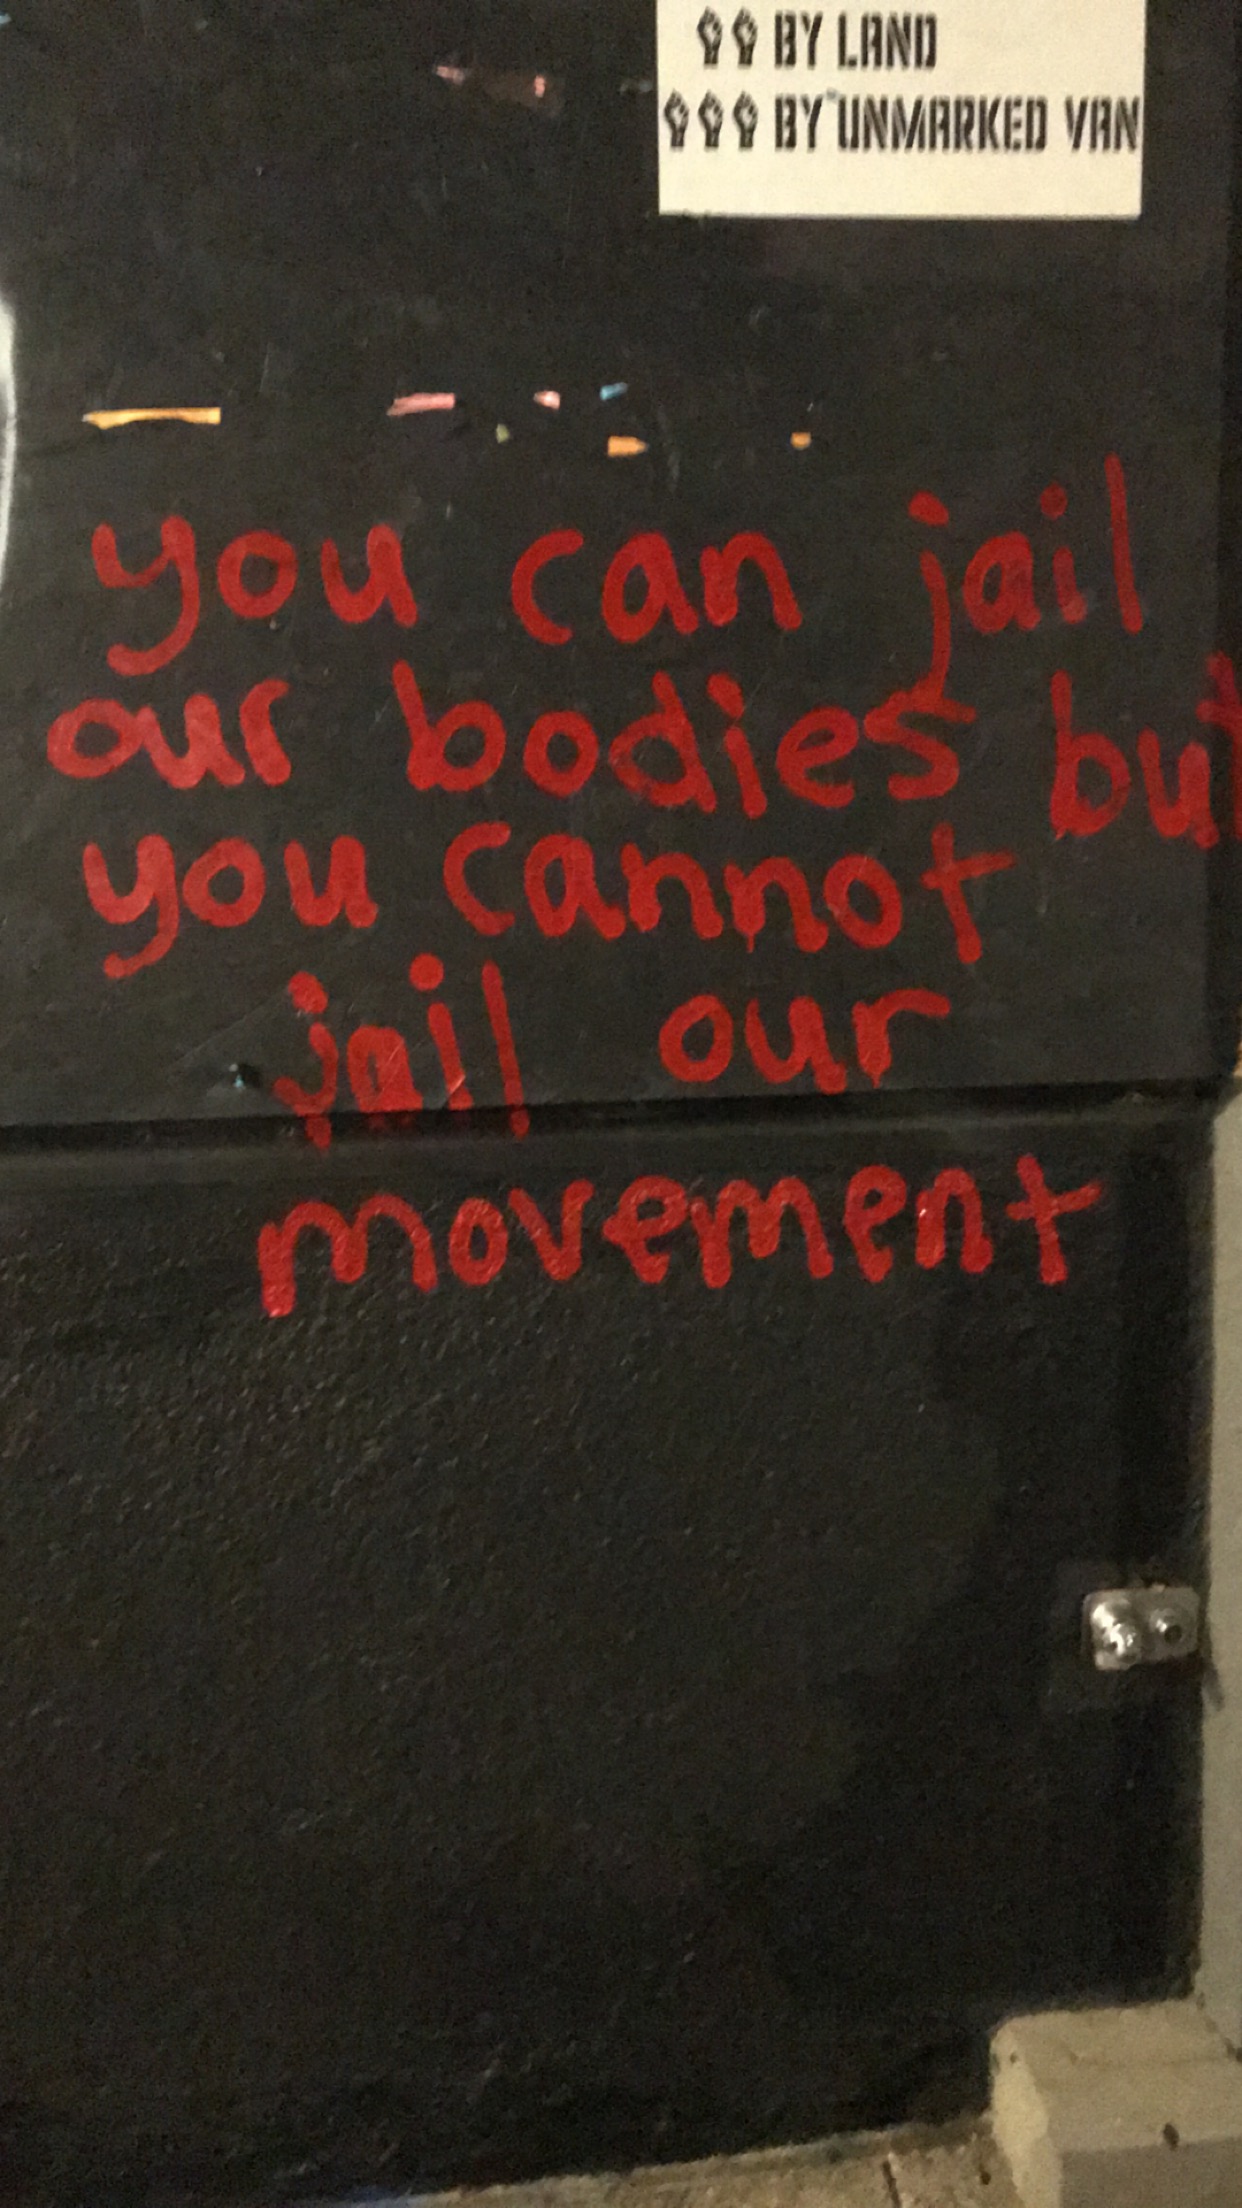 BY LAND
BY UNMARKED VAN
you can jail
our bodies but
you cannot
jail our
movement